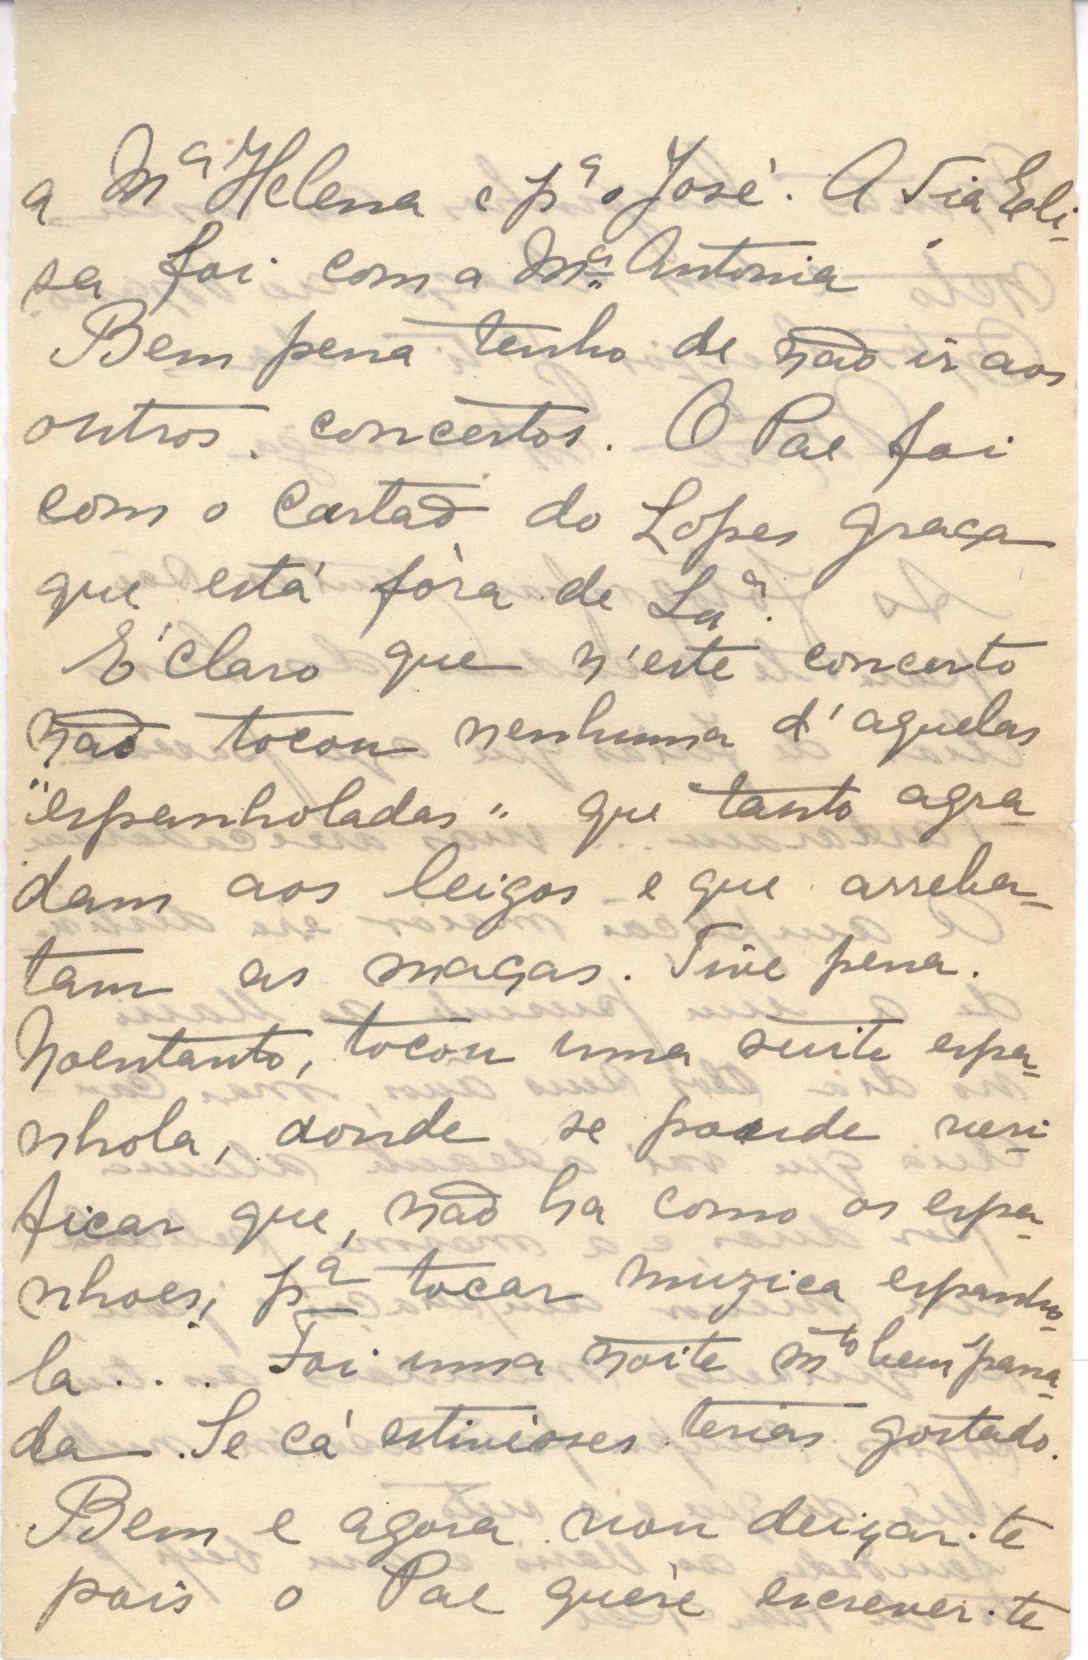 a Mª Helena e pª o José. A Tia Eli-
sa foi com a Mª Antonia
Bem pena tenho de não ir aos
outros concertos. O Pae foi
com o cartão do Lopes Graça
que está fòra de Lxª.
É claro que n'este concerto
não tocou nenhuma d'aquelas
"espanholadas" que tanto agra-
dam aos leigos e que arreba-
tam as maças. Tive pena.
Noentanto, tocou uma suite espa-
nhola, donde se poude veri
ficar que, não ha como os espa-
nhoes, pª tocar muzica espanho-
la... Foi uma noite mto bem passa-
da. Se cá estivesses terias gostado.
Bem e agora vou deiçar-te
pois o Pae quére escrever-te